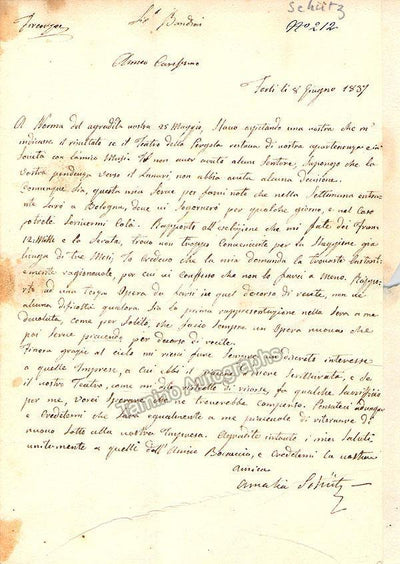 Schütz
Firenze
Sigr Bandini
No 212
Amico Carissimo
Forlì li 8 Giugno 1837
A Norma del agradita vostra 25 Maggio, stavo aspettando una vostra che m'
indicasse il risultato se il Teatro della Pergola restava di vostra apartenenza e in
Società con Lanari
vostra pendenza verso il Lanari non abbia avuta alcuna decisione.
Comunque sia, questa mia serve per farvi noto che nella Settimana entrante
sarò a Bologna, dove mi fermerò per qualche giorno, e nel caso
potrete scrivermi colà. Rapporto all' esibizione che mi fate dei Fran:
12: Mille e la Serata, trovo non troppo conveniente per la Staggione già
lunga di tre Mesi. Io credevo che la mia domanda la trovaste
ragionevole, per cui vi confesso che non lo farei a Meno. Rappor:
to ad una terza Opera da darsi in quel decorso di recite, non ne
alcuna dificoltà qualora sia la prima rappresentazione nella Sera a me
devoluta, come per Solito, che faccio sempre un Opera nuova che
poi serve pure per decorso di recite.
Finora grazie al cielo mi riescì fare sempre un discreto interesse
a quelle Imprese, a cui ebbi il piacere d'essere scritturata, e se
il vostro Teatro, come qualche sacrifizio
per me, vorei sperare che ne troverebbe compenso. Pensateci adunque
e credetemi che sarà egualmente a me piacevole di ritrovarmi di
nuovo sotto alla vostra Impresa. Agradite intanto i miei saluti
unitamente a quelli dell' Amico Bocaccio, e credetemi la vostra
amica
Amalia Schütz
Tamino Autographs